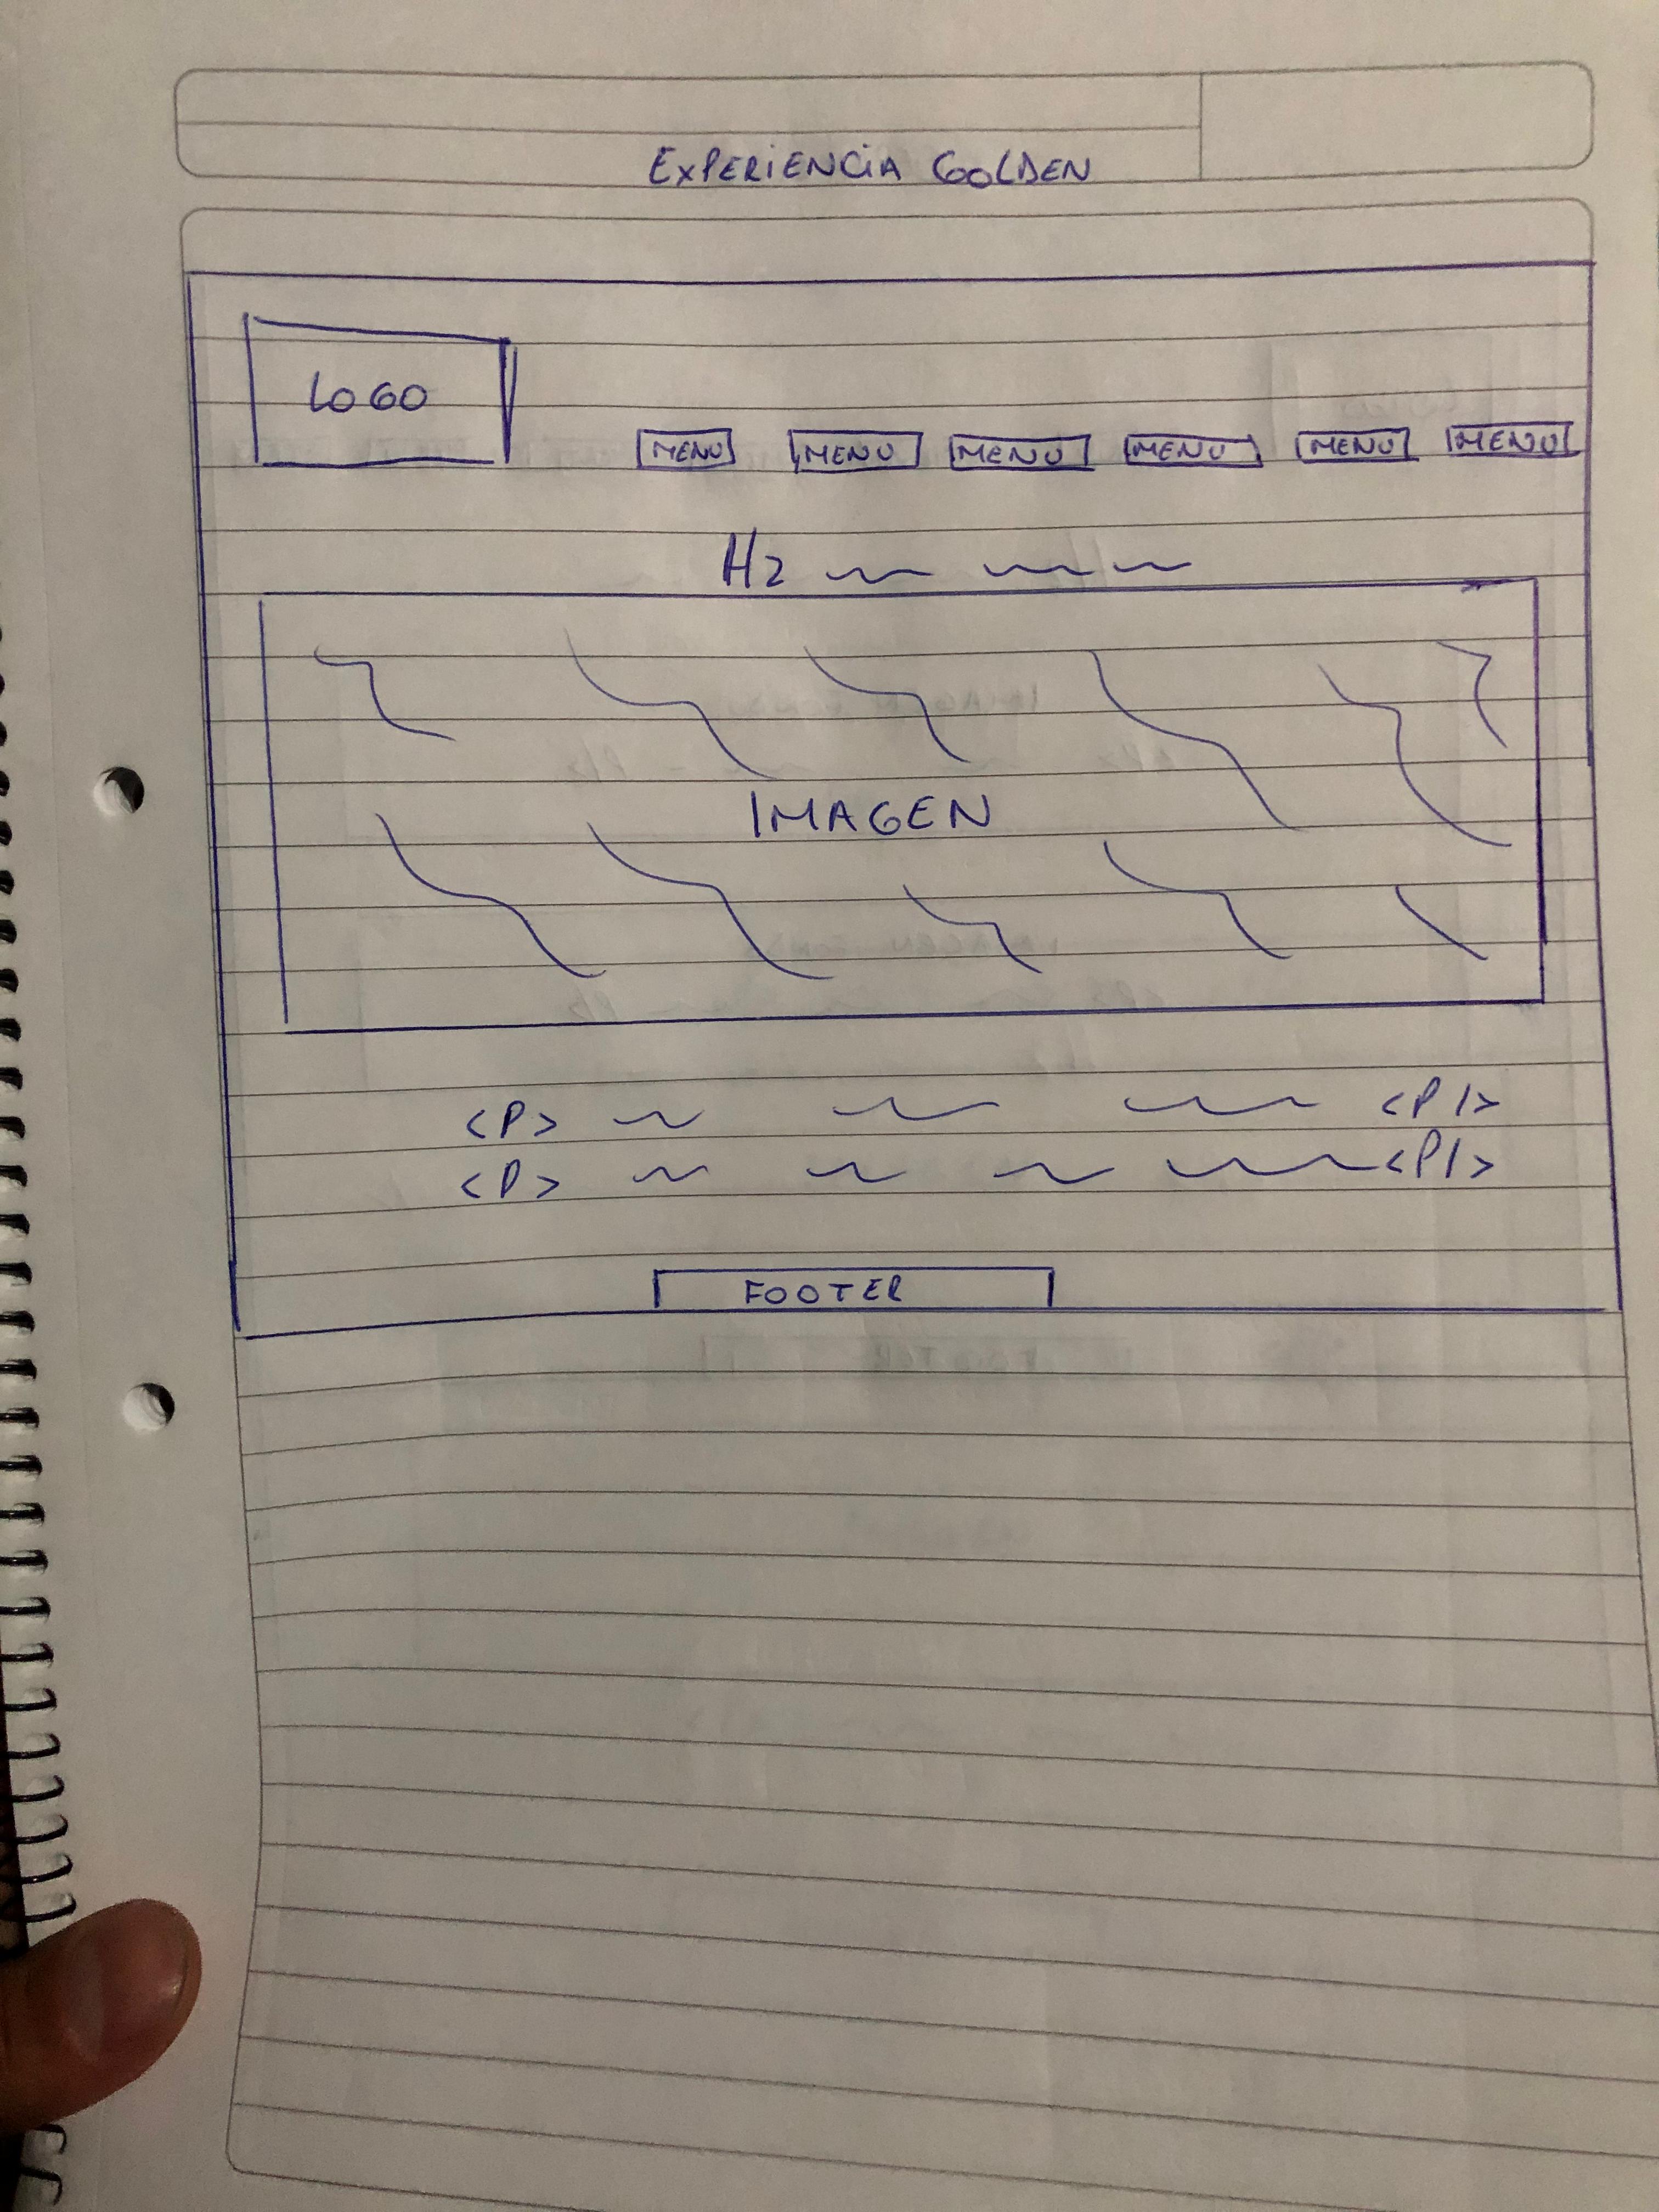 EXPERIENCIA GOLDEN
LOGO
MENU MENU MENU MENU MENU MENU
H2
IMAGEN
<P> <P/>
<P> <P/>
FOOTER